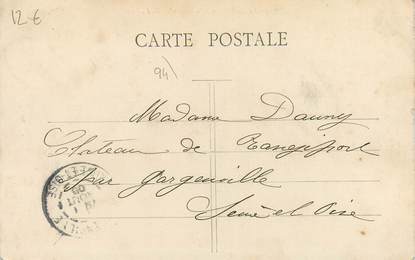 12 €
CARTE POSTALE
94)
Madame Dauny
Chateau de Rangiport
par Gargenville
Seine et Oise